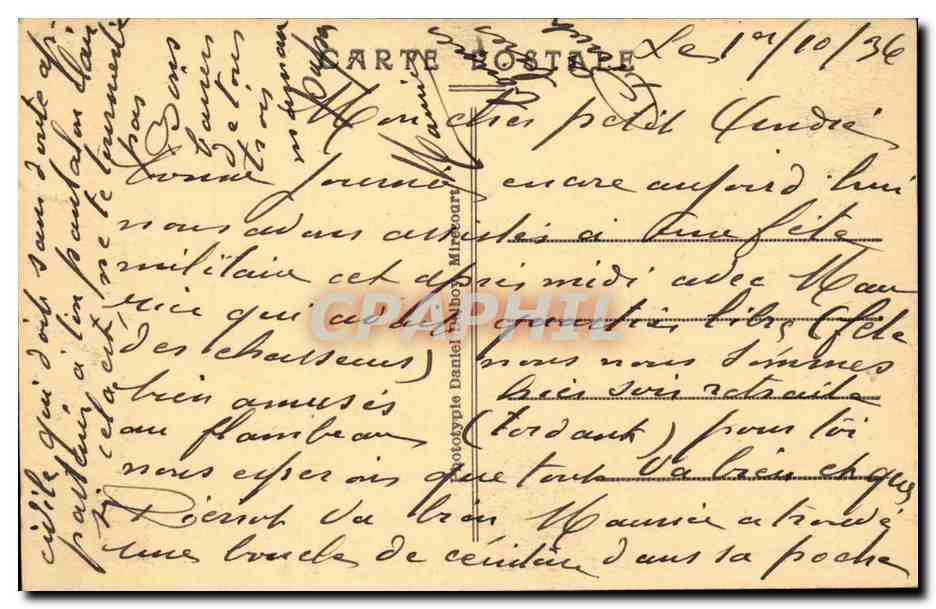 CARTE POSTALE
Le 1er/10/36
Mon cher petit André
bonne journée encore aujourd'hui
nous avons assistés à une fête
militaire cet après midi avec Mau
rice qui a quartier libre (fête
des chasseurs) nous nous sommes
bien amusés hier soir retraite
au flambeau (tordant) pour toi
nous esperons que tout va bien et que
Pierrot va bien Maurice a trouvé
une boucle de ceinture dans sa poche
civile qui doit sans doute ap-
partenir à ton pantalon
si cela est, ne te tourmente
pas
Bons
baisers
de tous
trois
maman
Papa
Maurice
Phototypie Daniel Delboy, Mirecourt
CPAPHIL